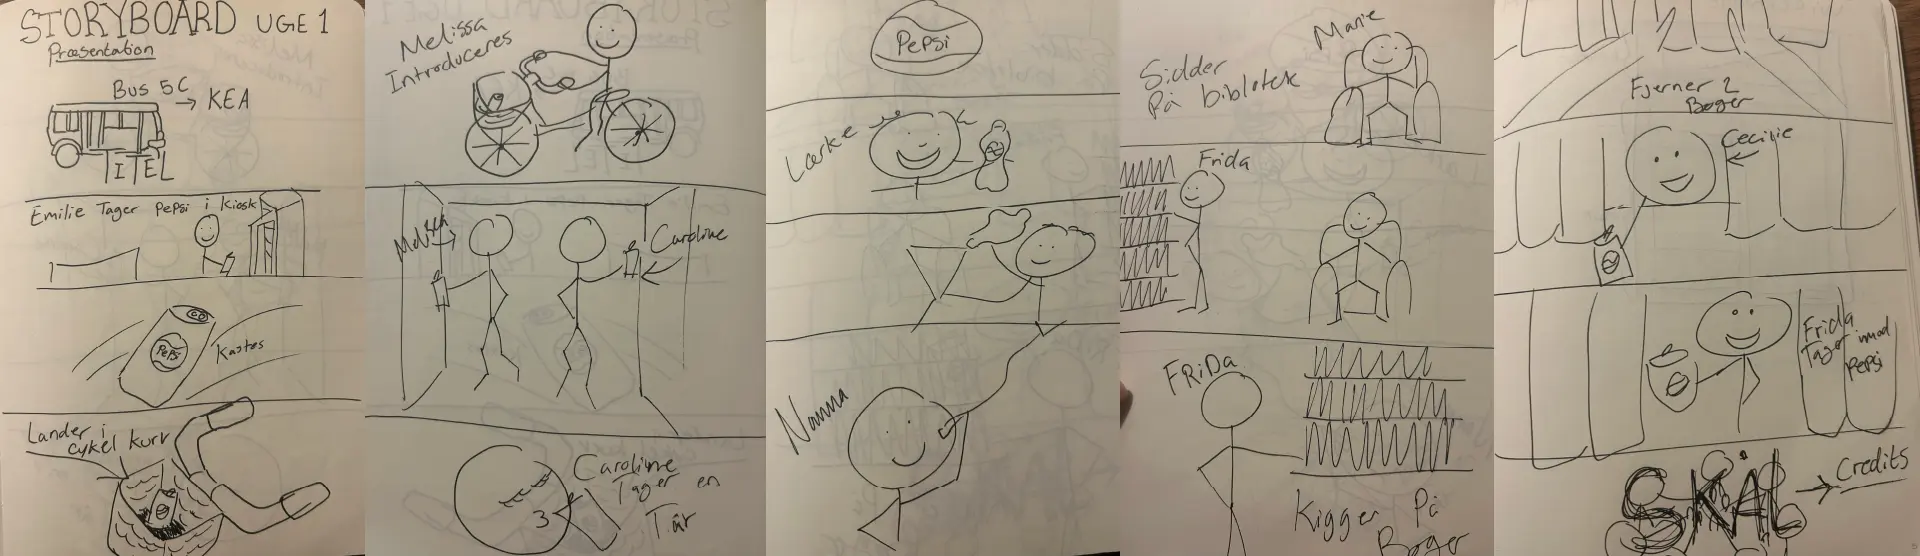 STORYBOARD UGE 1
Præsentation
Bus 5C → KEA
TITEL
Emilie Tager Pepsi i kiosk
Pepsi
Kastes
Lander i
cykel kurv
Melissa
Introduceres
Melissa
Caroline
Caroline
Tager en
Tår
Pepsi
Lærke
Nanna
Marie
Sidder
På bibliotek
Frida
FRIDA
Kigger På
Bøger
Fjerner 2
Bøger
Cecilie
Frida
Tager imod
Pepsi
SKÅL → Credits